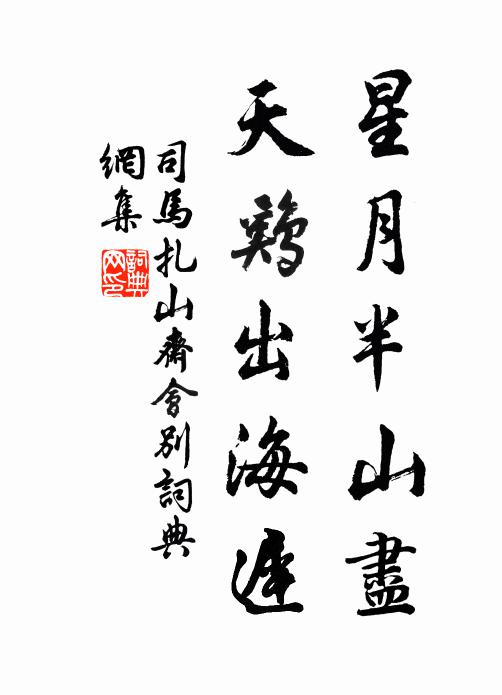 星月半山盡
天鷄出海遲
司馬扎山齋會別詞典
網集
詞典
网印